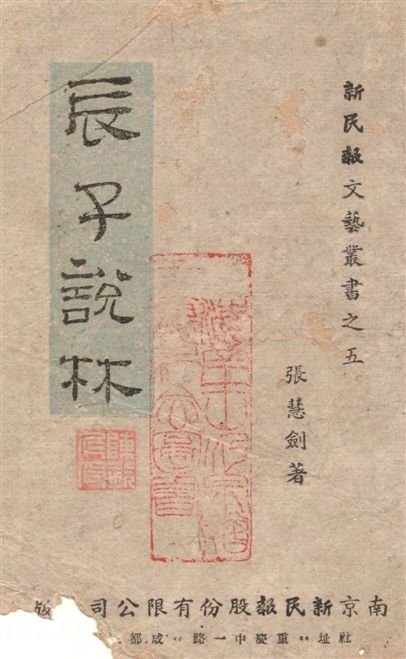 新民報文藝叢書之五
張慧劍著
辰子說林
南京新民報股份有限公司 版
社址：重慶中一路：成都